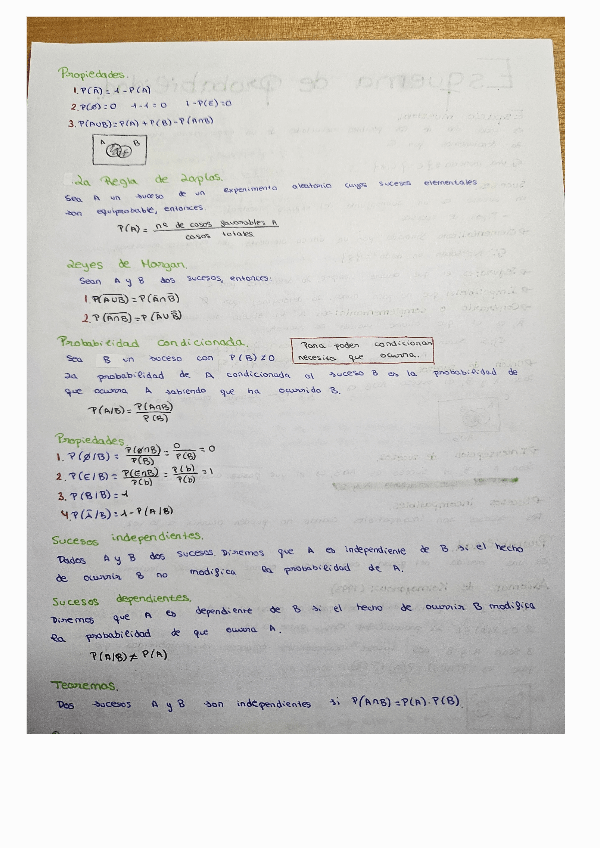 Propiedades.
1. P(Ā) = 1 - P(A)
2. P(ø) = 0   1 - 1 = 0   1 - P(E) = 0
3. P(A∪B) = P(A) + P(B) - P(A∩B)
A B
La Regla de Laplas.
Sea A un suceso de un experimento aleatorio cuyos sucesos elementales
son equiprobable, entonces.
P(A) = nº de casos favorables A / casos totales
Leyes de Morgan.
Sean A y B dos sucesos, entonces:
1. P(A̅∪̅B̅) = P(Ā∩B̄)
2. P(A̅∩̅B̅) = P(Ā∪B̄)
Probabilidad condicionada.
Para poder condicionar
necesito que ocurra.
Sea B un suceso con P(B) ≠ 0
La probabilidad de A condicionada al suceso B es la probabilidad de
que ocurra A sabiendo que ha ocurrido B.
P(A/B) = P(A∩B) / P(B)
Propiedades
1. P(ø/B) = P(ø∩B) / P(B) = 0 / P(B) = 0
2. P(E/B) = P(E∩B) / P(b) = P(b) / P(b) = 1
3. P(B/B) = 1
4. P(Ā/B) = 1 - P(A/B)
Sucesos independientes.
Dados A y B dos sucesos. Diremos que A es independiente de B si el hecho
de ocurrir B no modifica la probabilidad de A.
Sucesos dependientes.
Diremos que A es dependiente de B si el hecho de ocurrir B modifica
la probabilidad de que ocurra A.
P(A/B) ≠ P(A)
Teoremas.
Dos sucesos A y B son independientes si P(A∩B) = P(A)·P(B).